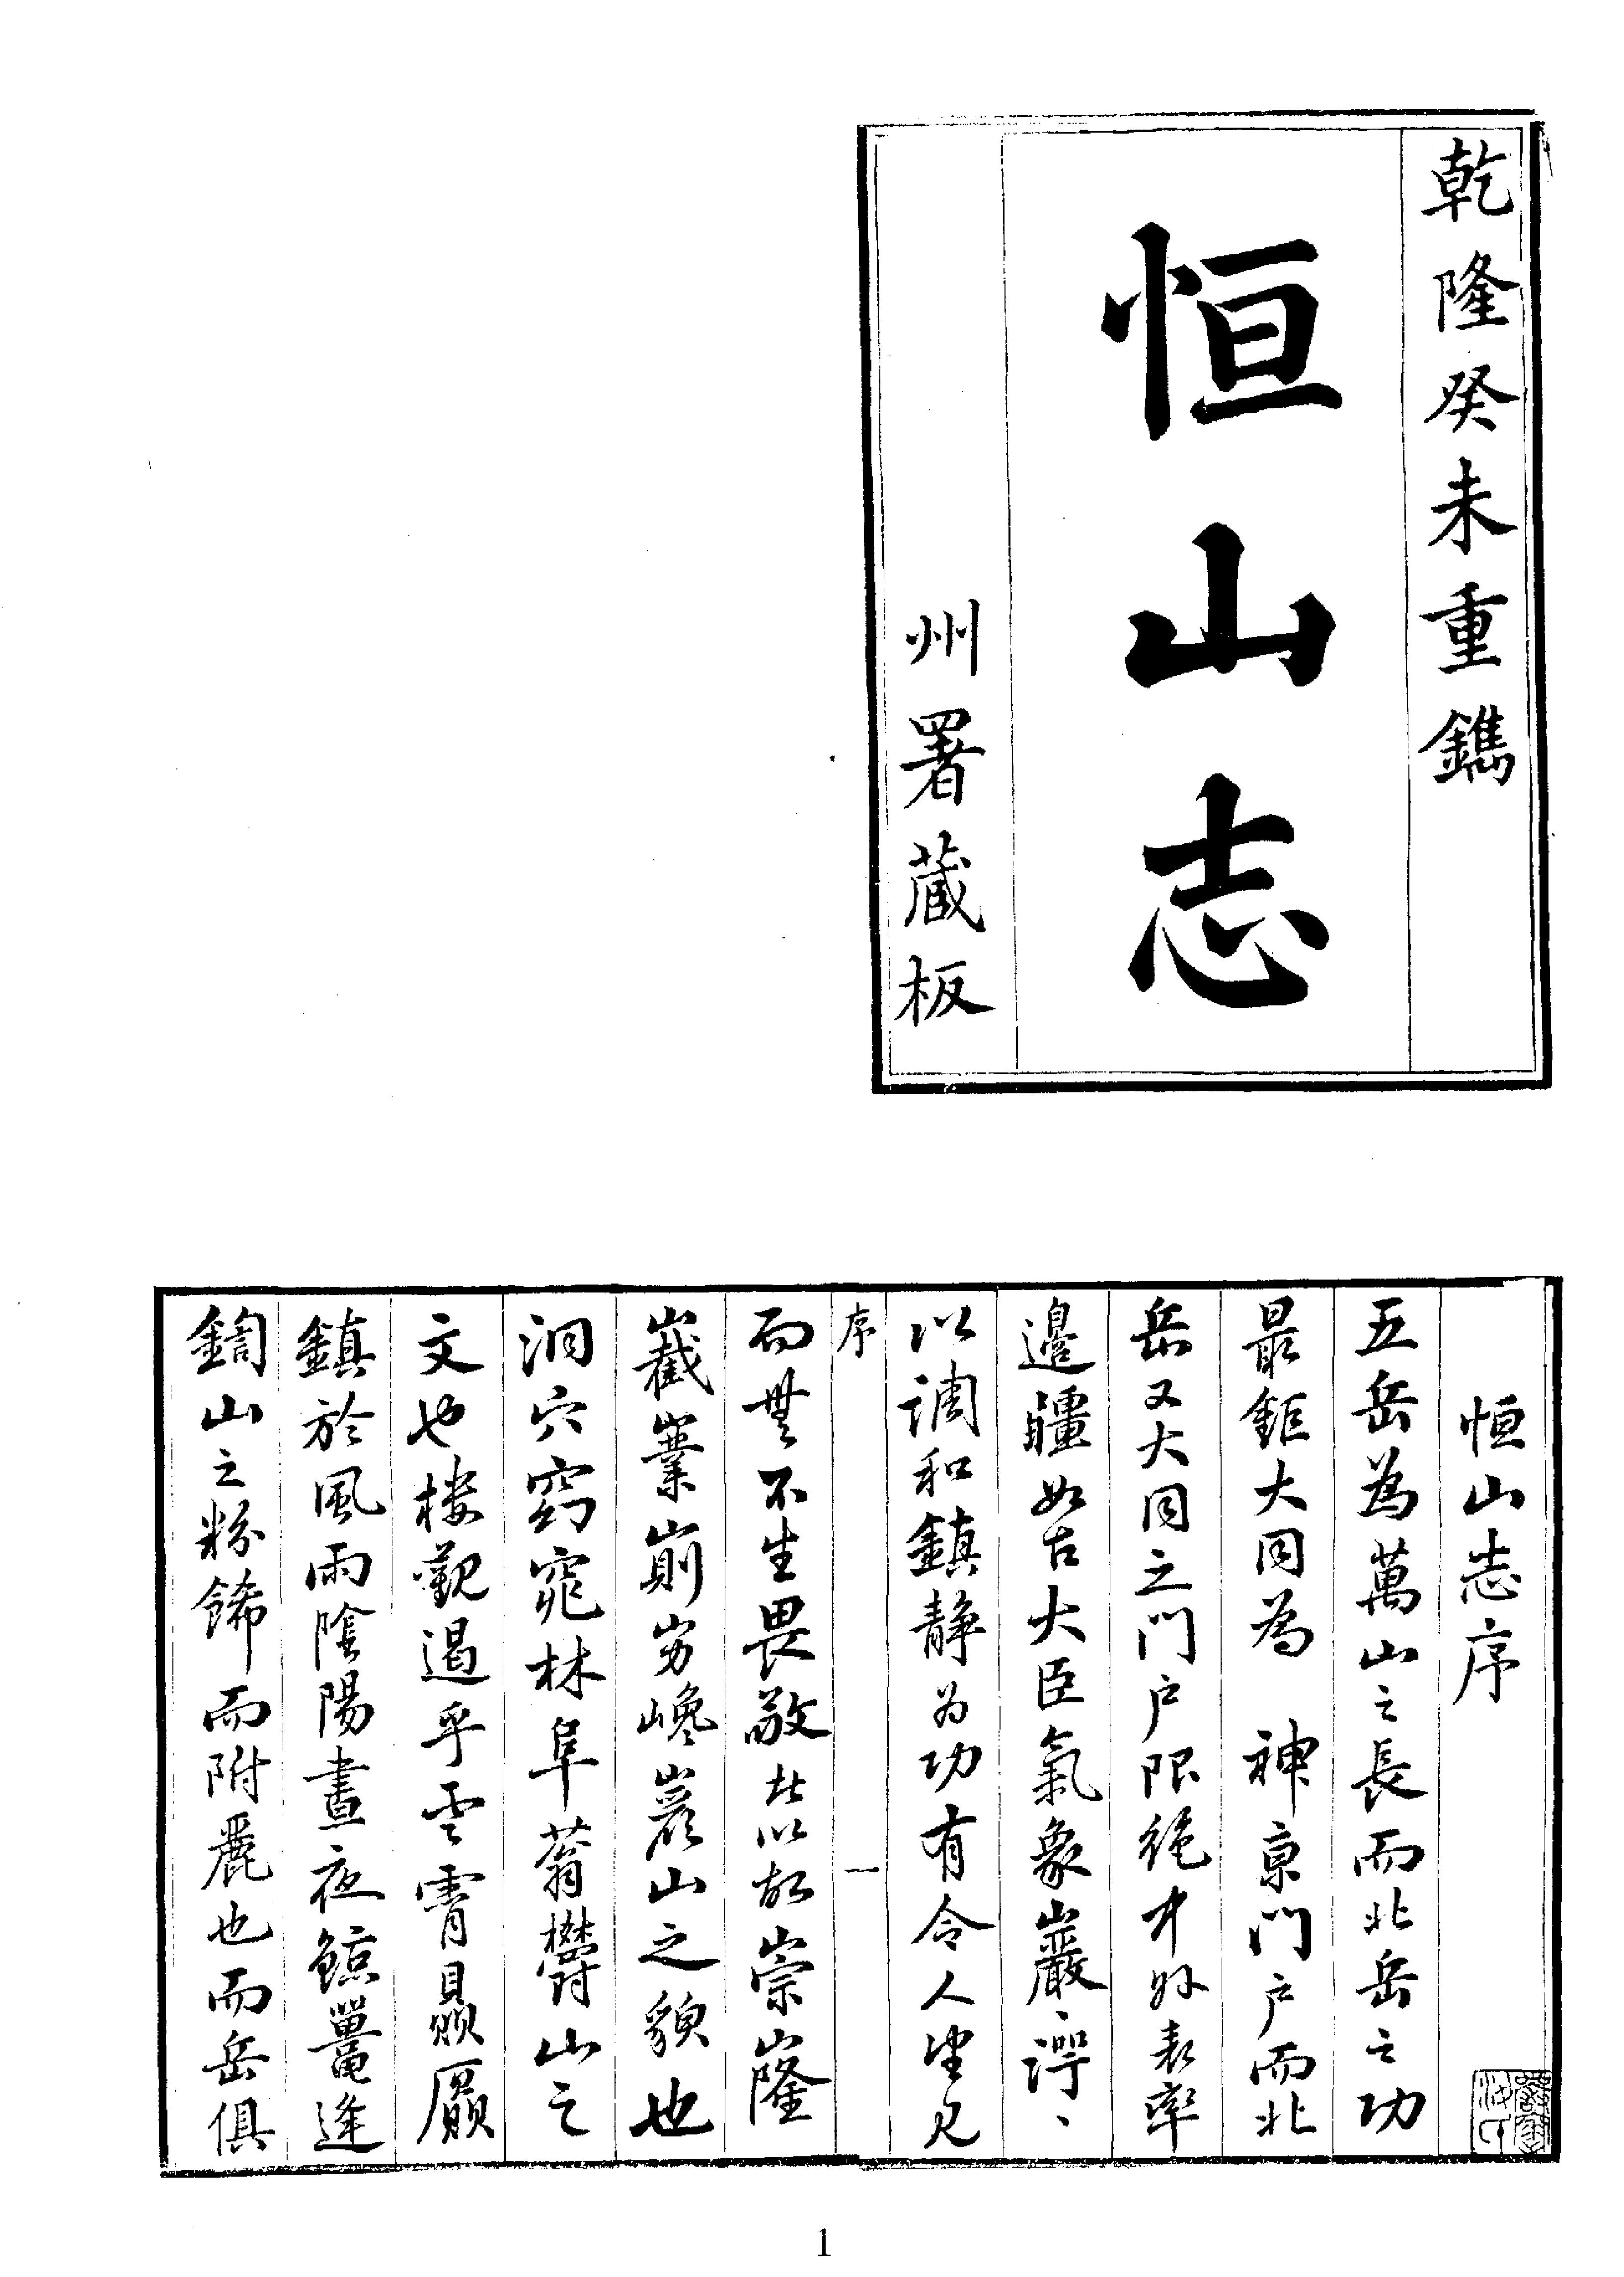 乾隆癸未重鐫
恒山志
州署藏板
恒山志序
五岳為萬山之長而北岳之功
最鉅大同為 神京門户而北
岳又大同之門户限絶中外表率
邊疆如古大臣氣象巖、諤、
以調和鎮静为功有令人望見
序 一
而無不生畏敬者以故崇嶐
嶻嶪崱屴巉巖山之貌也
洞穴窈窕林阜蓊欝山之
文也楼觀遏乎雲霄贔屭
鎮於風雨陰陽晝夜鯨鼉逢
山之粉餙而附麗也而岳俱
1